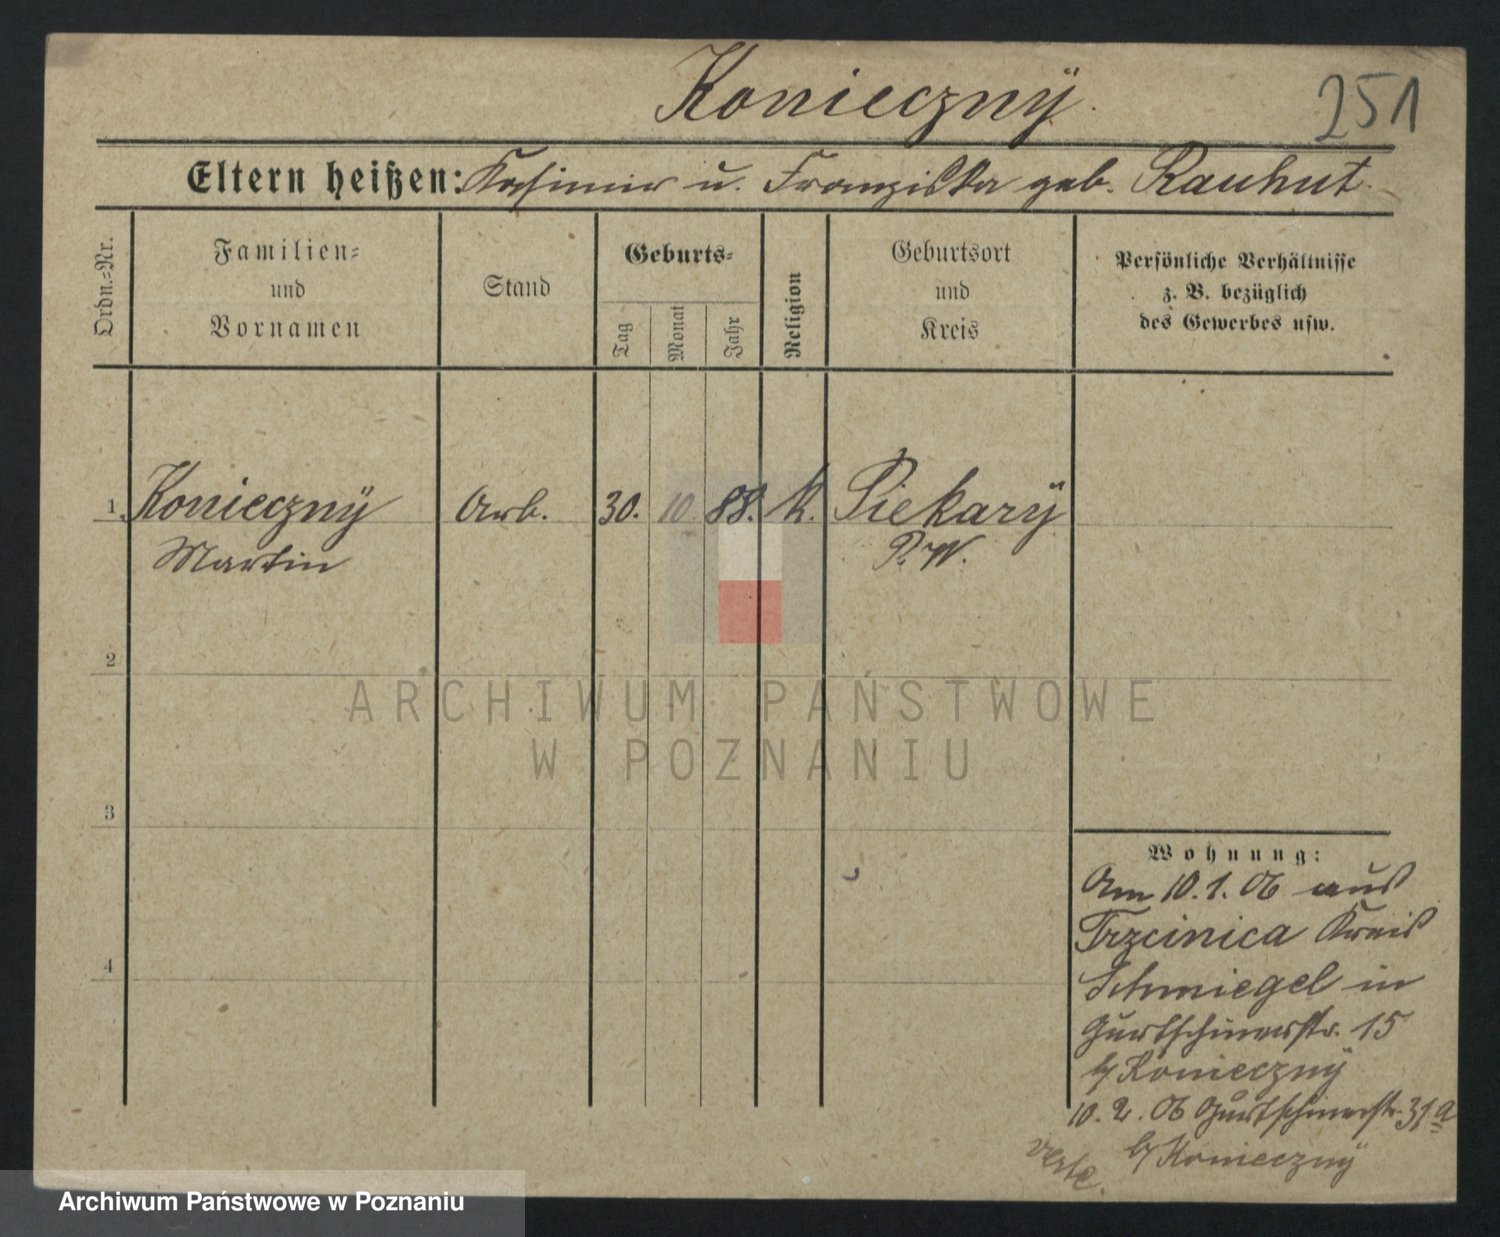 Konieczny.
251
Eltern heißen: Kasimir u. Franziska geb. Rauhut.
Ordn.=Nr.
Familien=
und
Vornamen
Stand
Geburts=
Tag
Monat
Jahr
Religion
Geburtsort
und
Kreis
Persönliche Verhältnisse
z. B. bezüglich
des Gewerbes usw.
1. Konieczny Arb. 30. 10. 88. k. Piekary
Martin P. W.
2
ARCHIWUM PAŃSTWOWE
W POZNANIU
3
Wohnung:
Am 10.1.06 aus
Trzcinica Kreis
4
Schmiegel in
Gurtschinerstr. 15
b/ Konieczny
10.2.06 Gurtschinerstr. 31a
b/ Konieczny
verte.
Archiwum Państwowe w Poznaniu